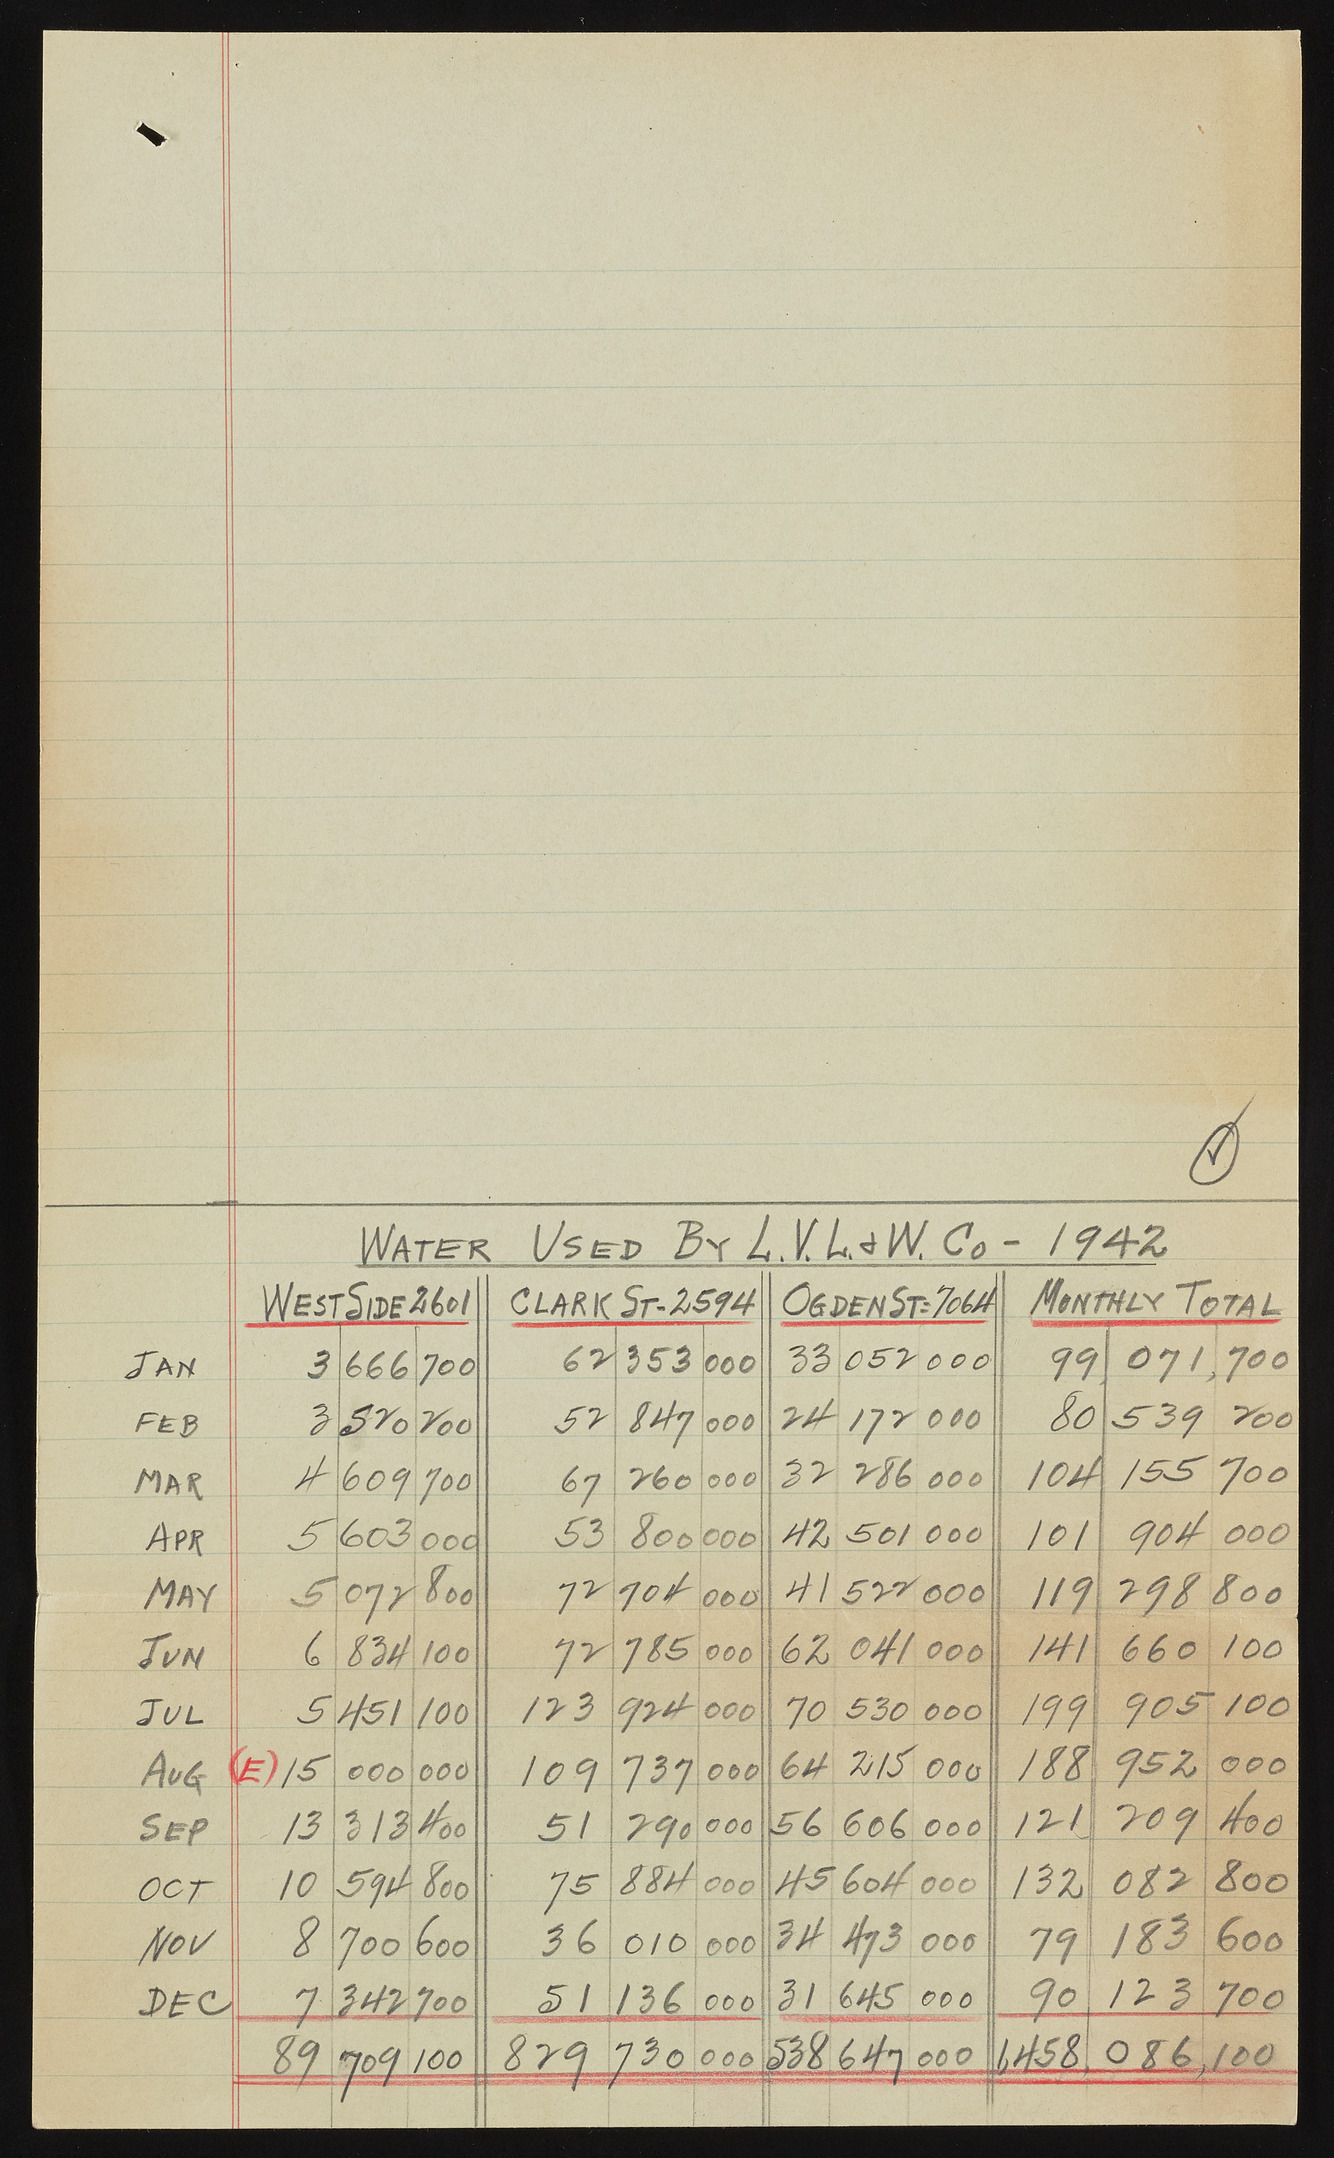 WATER USED BY L.V.L.&W. Co - 1942
WEST SIDE 2601 CLARK ST-2594 OGDEN ST=7064 MONTHLY TOTAL
JAN 3 666 700 62 353 000 33 052 000 99, 071, 700
FEB 3 520 200 52 847 000 24 172 000 80 539 200
MAR 4 609 700 67 260 000 32 286 000 104 155 700
APR 5 603 000 53 800 000 42 501 000 101 904 000
MAY 5 072 800 72 704 000 41 522 000 119 298 800
JUN 6 834 100 72 785 000 62 041 000 141 660 100
JUL 5 451 100 123 924 000 70 530 000 199 905 100
AUG (E) 15 000 000 109 737 000 64 215 000 188 952 000
SEP 13 313 400 51 290 000 56 606 000 121 209 400
OCT 10 594 800 75 884 000 45 604 000 132 082 800
NOV 8 700 600 36 010 000 34 473 000 79 183 600
DEC 7 342 700 51 136 000 31 645 000 90 123 700
89 709 100 829 730 000 538 647 000 1,458, 086, 100